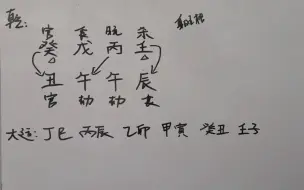 乾: 官 食 杀
癸 戊 丙 壬
丑 午 午 辰
官 劫 劫
大运: 丁巳 丙辰 乙卯 甲寅 癸丑 壬子